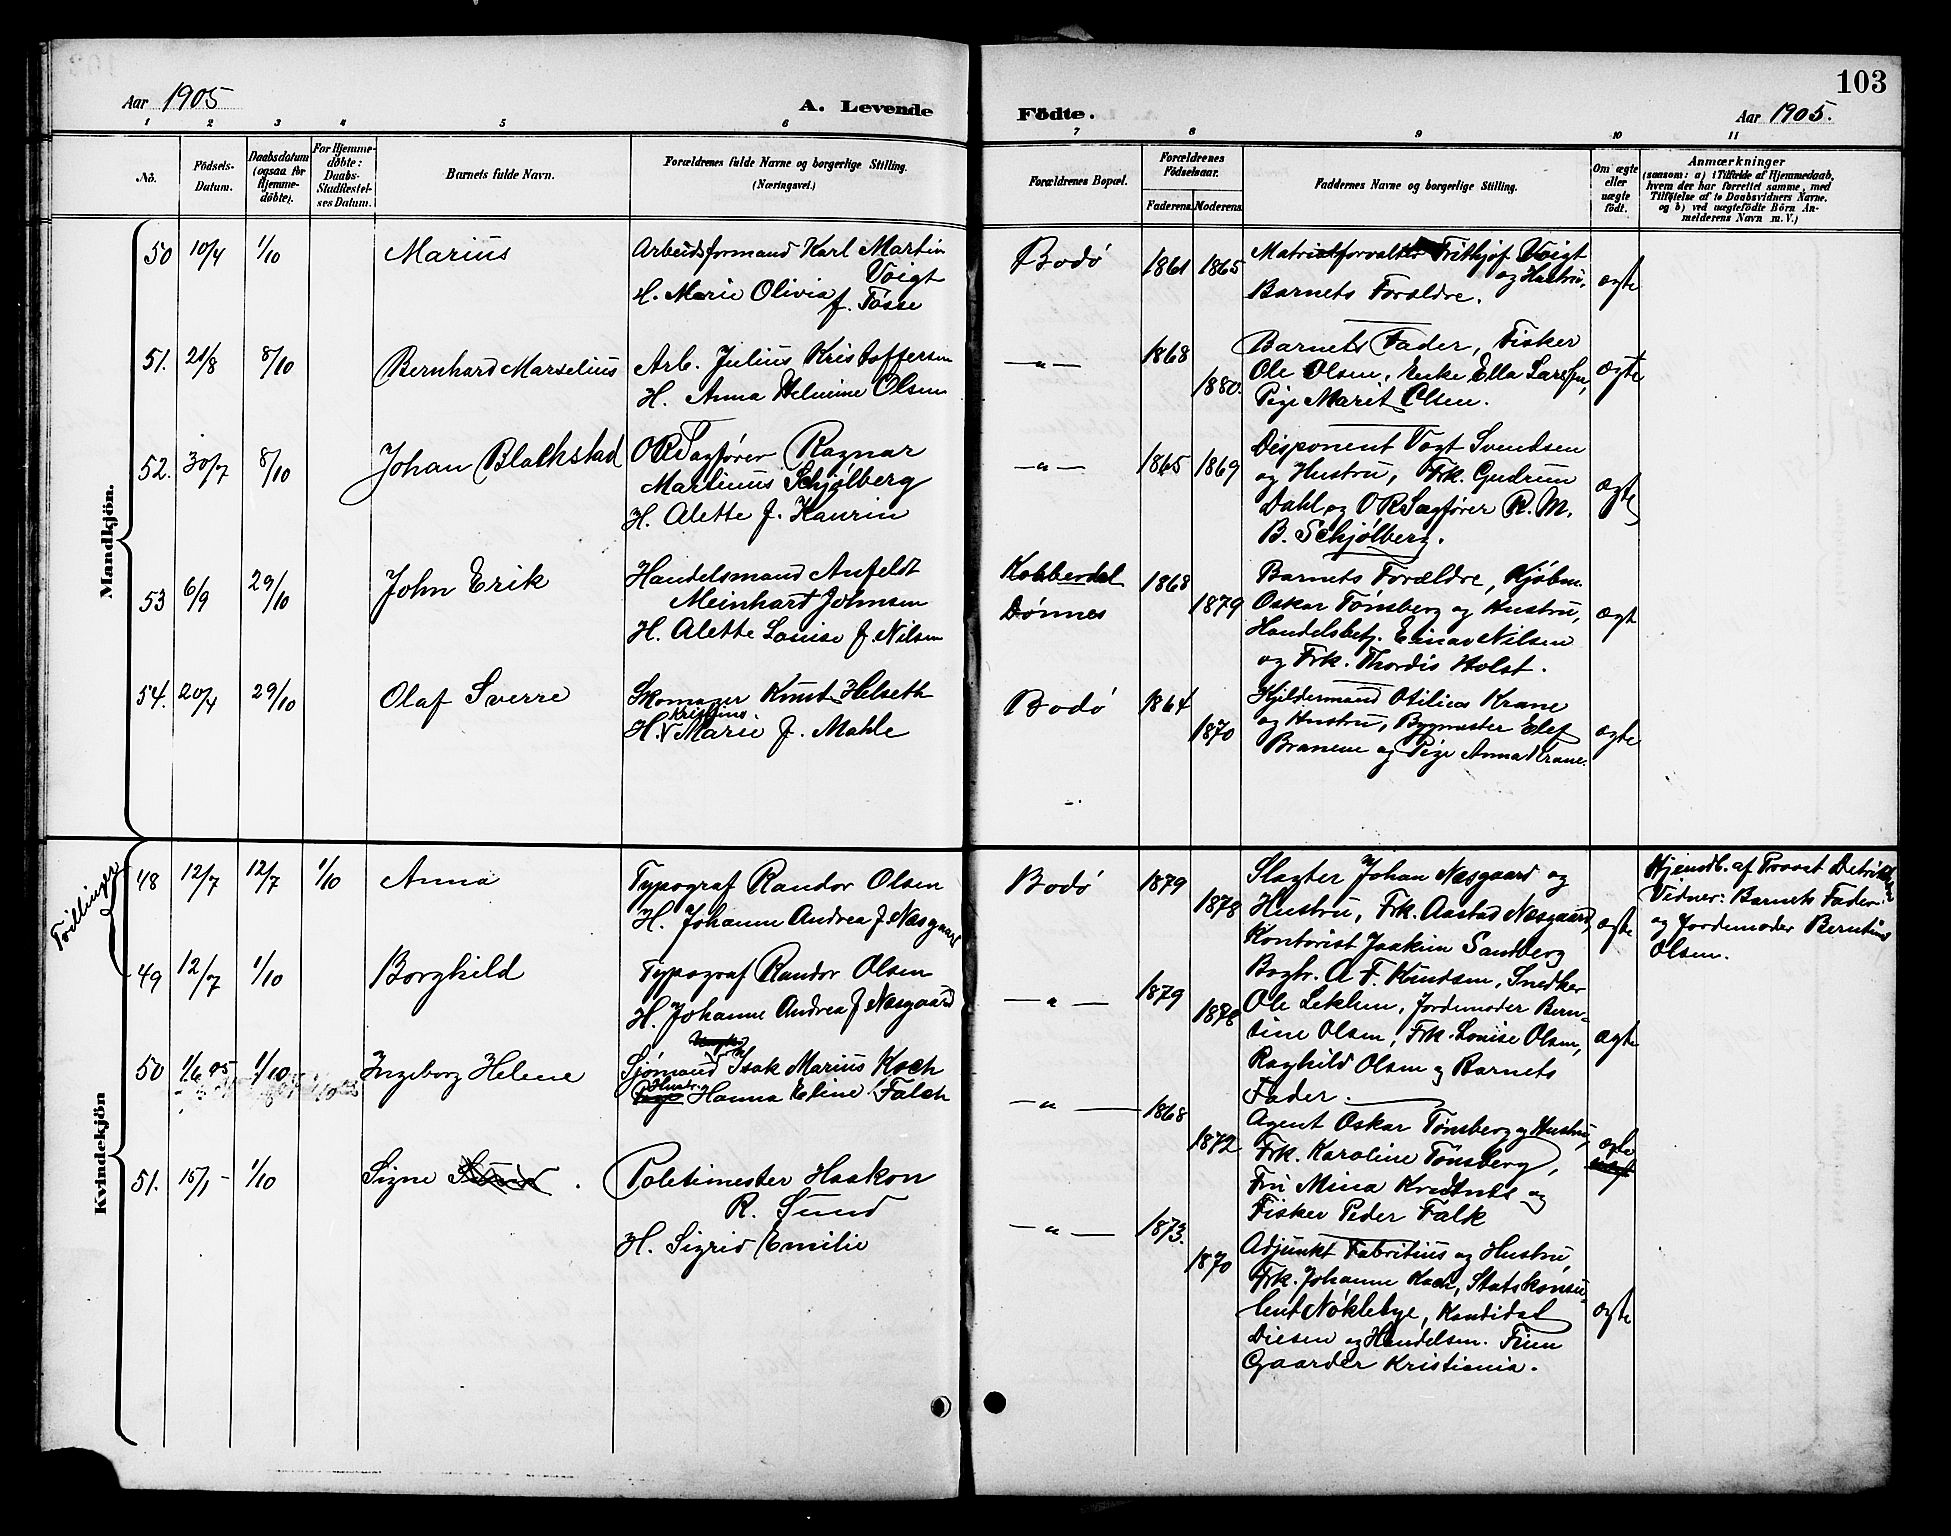 103
Aar 1905
A. Levende
Födte.
Aar 1905.
1 2 3 4 5 6 7 8 9 10 11
No.
Födsels-
Datum.
Daabsdatum
(ogsaa for
Hjemme-
døbte).
For Hjemme-
døbte:
Daabs-
Stadfæstel-
ses Datum.
Barnets fulde Navn.
Forældrenes fulde Navne og borgerlige Stilling.
(Næringsvei.)
Forældrenes Bopæl.
Forældrenes
Födselsaar.
Faderens.
Moderens.
Faddernes Navne og borgerlige Stilling.
Om ægte
eller
uægte
født.
Anmærkninger
(saasom: a) i Tilfælde af Hjemmedaab,
hvem der har forrettet samme, med
Tilföielse af to Daabsvidners Navne,
og b) ved uægtefödte Börn An-
melderens Navn m. V.)
Mandkjön.
50 10/4 1/10 Marius
Arbeidsformand Karl Martin
Voigt
H. Marie Olivia f. Fosse
Bodø 1861 1865
Matrialforvalter Frithjof Voigt
og Hustru,
Barnets Forældre.
ægte
51. 21/8 8/10 Bernhard Marselius
Arb. Julius Kristoffersen
H. Anna Helmine Olsen
—"— 1868 1880.
Barnets Fader, Fisker
Ole Olsen, Enke Ella Larsen,
Pige Marit Olsen.
ægte
52. 30/7 8/10 Johan Blackstad
ORSagfører Ragnar
Martinus Schjølberg
H. Alette f. Kaurin
—"— 1865 1869
Disponent Vogt Svendsen
og Hustru, Frk. Gudrun
Dahl og ORSagfører R. M.
B. Schjølberg.
ægte
53 6/9 29/10 John Erik
Handelsmand Anfeldt
Meinhart Johnsen
H. Alette Louise f. Nilsen
Kobberdal
Dønnes
1868 1879
Barnets Forældre, Kjøbm.
Oskar Tønsberg og Hustru,
Handelsbetj. Einar Nilsen
og Frk. Thordis Holst.
ægt
54. 20/4 29/10 Olaf Sverre
Skomager Knut Helseth
Kristine
H. Marie f. Mahle
Bodø 1864 1870
Kjeldermand Otilius Krane
og Hustru, Bygmester Elef
og Pige Anna Krane.
ægte
Kvindekjön
Tvillinger
48 12/7 12/7 1/10 Anna
Typograf Randor Olsen
H. Johanne Andrea f. Næsgaard
Bodø 1879 1878
Slagter Johan Næsgaard og
Hustru, Frk. Aastad Næsgaard,
Kontorist Joakim Sandberg
ægte
Hjemdb. af Provst
Vidner: Barnets Fader
og Jordemoder Berntine
Olsen.
49 12/7 1/10 Borghild
Typograf Randor Olsen
H. Johanne Andrea f. Næsgaard
—"— 1879 1878
Bogtr. A F. Knudsen, Snedker
Ole Leklem, Jordemoder Bern-
tine Olsen, Frk. Louise Olsen,
Raghild Olsen og Barnets
Fader.
ægte
50 1/6 95 1/10 Ingeborg Helene
Sjømand Isak Marius Koch
Hustr.
Hanna Eline Falch
—"— 1868 1872
Agent Oskar Tønsberg og Hustru,
Frk. Karoline Tønsberg,
Fru Mina og
Fisker Peder Falk
ægte
51. 15/1 — 1/10 Signe Sund.
Politimester Haakon
R. Sund
H. Sigrid Emilie
—"— 1873. 1870
Adjunkt Fabritius og Hustru,
Frk. Johanne Koch, Statskonsu-
lent Nøklebye, Kandidat
Diesen og Handelsm. Finn
Gaarder Kristiania.
ægte